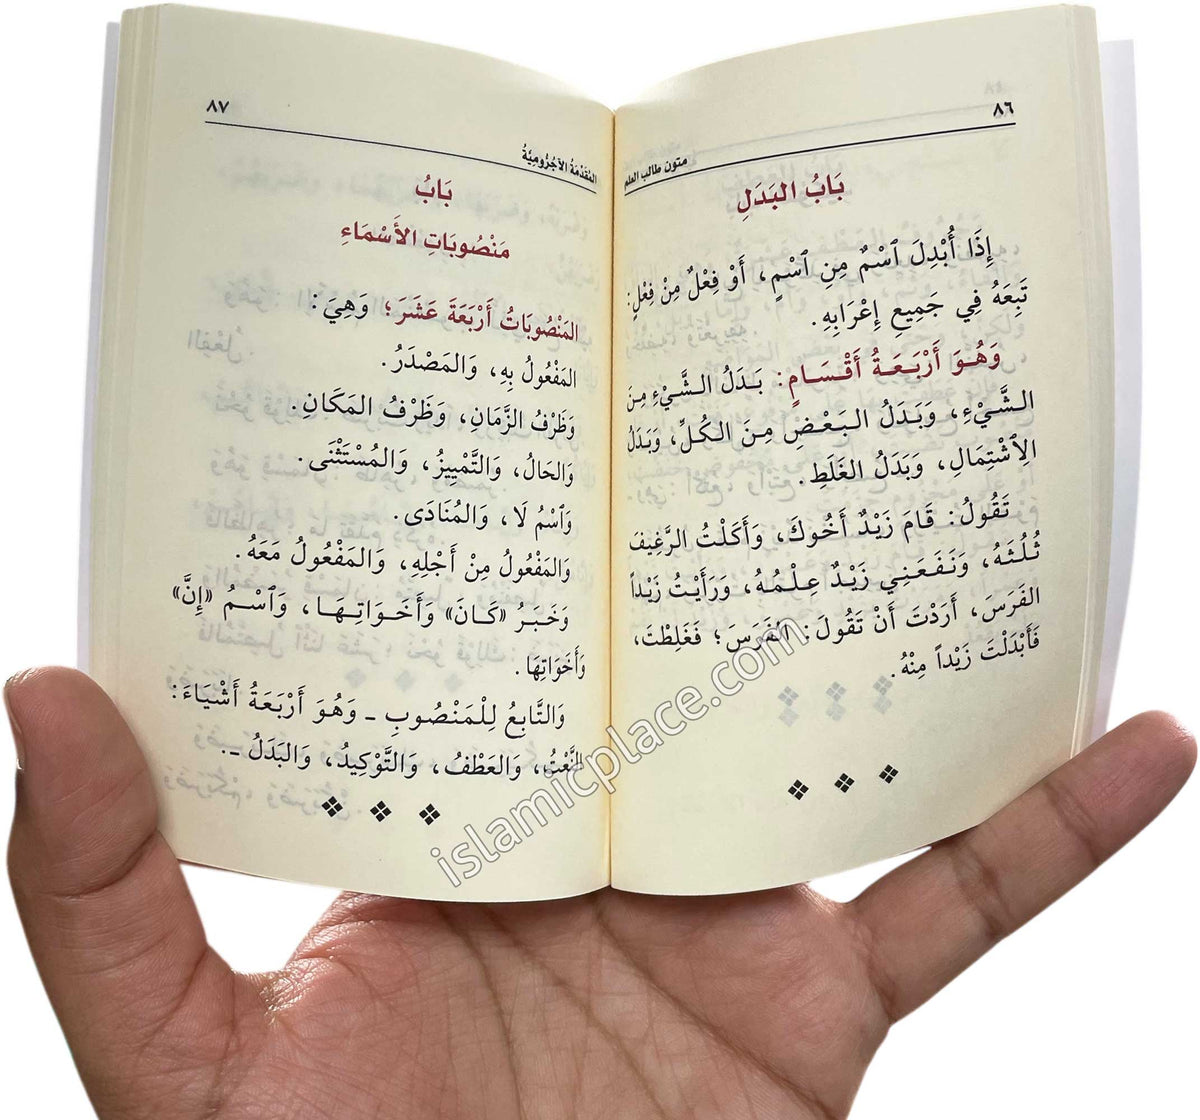 ٨٦
متون طالب العلم
بَابُ البَدَلِ
إِذَا أُبْدِلَ ٱسْمٌ مِنِ ٱسْمٍ، أَوْ فِعْلٌ مِنْ فِعْلٍ:
تَبِعَهُ فِي جَمِيعِ إِعْرَابِهِ.
وَهُوَ أَرْبَعَةُ أَقْسَامٍ: بَدَلُ الشَّيْءِ مِنَ
الشَّيْءِ، وَبَدَلُ البَعْضِ مِنَ الكُلِّ، وَبَدَلُ
الِٱشْتِمَالِ، وَبَدَلُ الغَلَطِ.
تَقُولُ: قَامَ زَيْدٌ أَخُوكَ، وَأَكَلْتُ الرَّغِيفَ
ثُلُثَهُ، وَنَفَعَنِي زَيْدٌ عِلْمُهُ، وَرَأَيْتُ زَيْداً
الفَرَسَ، أَرَدْتَ أَنْ تَقُولَ: الفَرَسَ؛ فَغَلِطْتَ،
فَأَبْدَلْتَ زَيْداً مِنْهُ.
٨٧
المُقَدِّمَةُ الآجُرُّومِيَّةُ
بَابُ
مَنْصُوبَاتِ الأَسْمَاءِ
المَنْصُوبَاتُ أَرْبَعَةَ عَشَرَ؛ وَهِيَ:
المَفْعُولُ بِهِ، وَالمَصْدَرُ.
وَظَرْفُ الزَّمَانِ، وَظَرْفُ المَكَانِ.
وَالحَالُ، وَالتَّمْيِيزُ، وَالمُسْتَثْنَى.
وَٱسْمُ لَا، وَالمُنَادَى.
وَالمَفْعُولُ مِنْ أَجْلِهِ، وَالمَفْعُولُ مَعَهُ.
وَخَبَرُ «كَانَ» وَأَخَوَاتِهَا، وَٱسْمُ «إِنَّ»
وَأَخَوَاتِهَا.
وَالتَّابِعُ لِلْمَنْصُوبِ ـ وَهُوَ أَرْبَعَةُ أَشْيَاءَ:
النَّعْتُ، وَالعَطْفُ، وَالتَّوْكِيدُ، وَالبَدَلُ ـ.
islamicplace.com